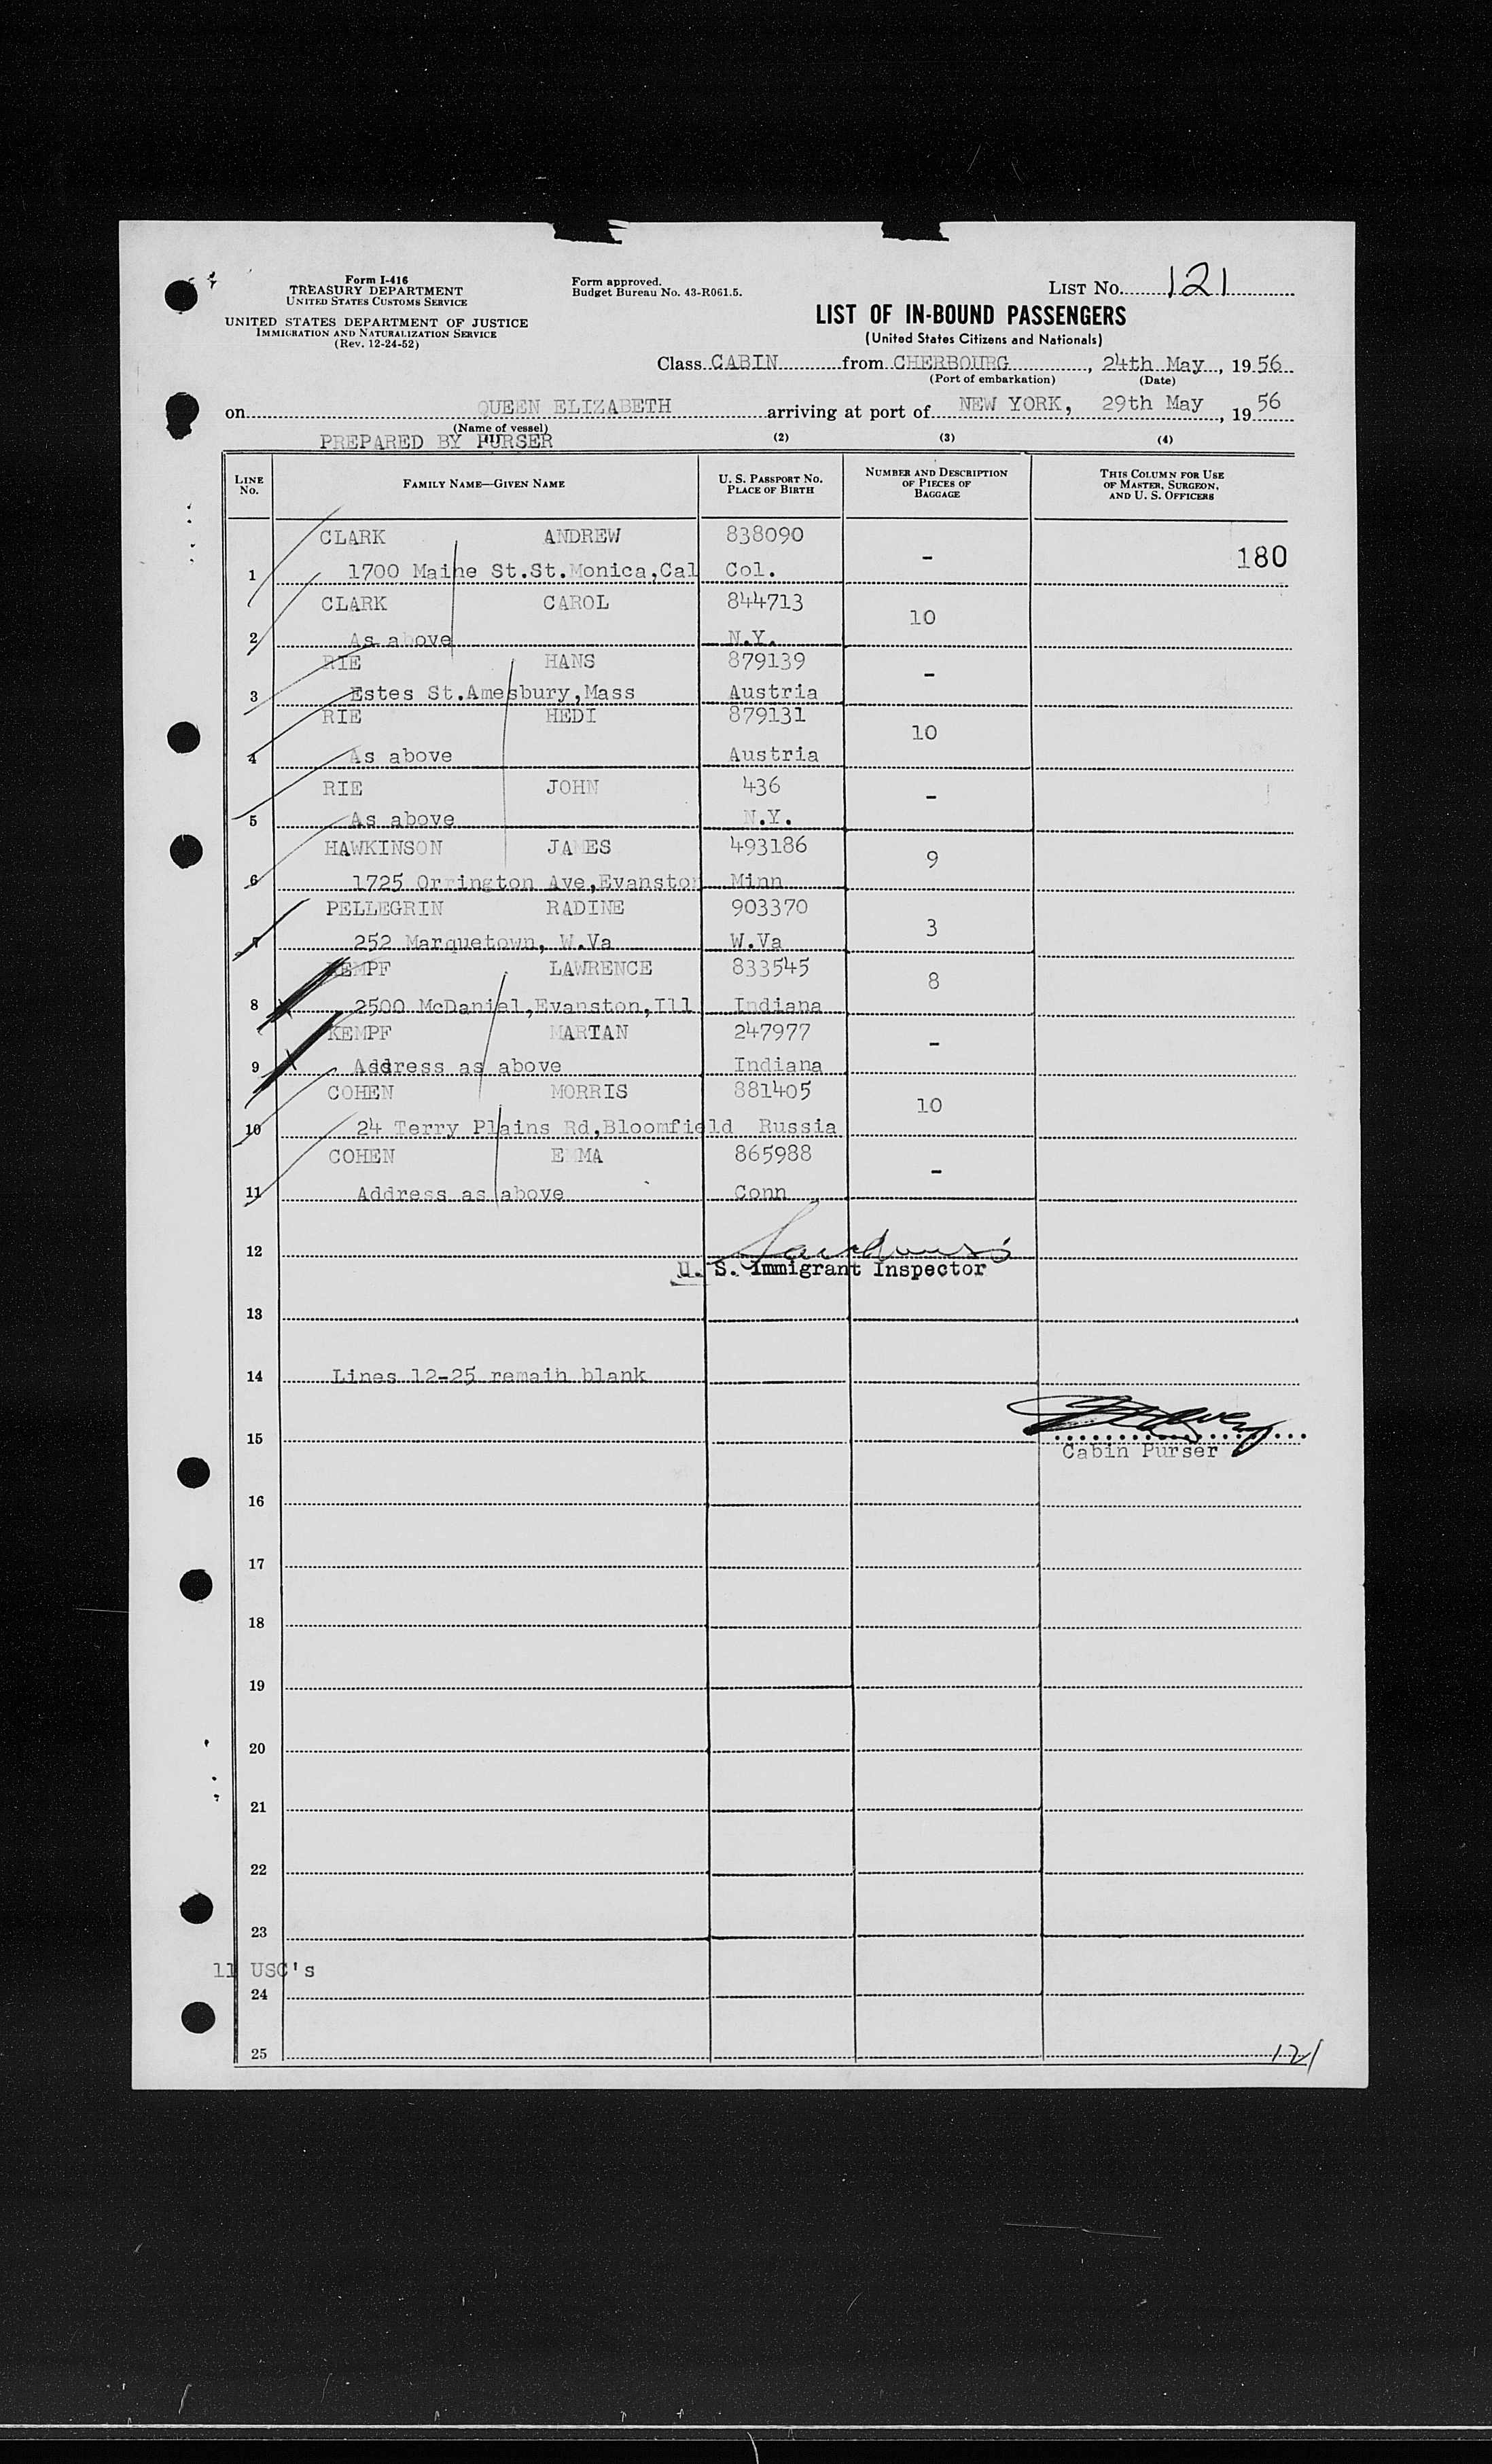 Form I-416
TREASURY DEPARTMENT
UNITED STATES CUSTOMS SERVICE
UNITED STATES DEPARTMENT OF JUSTICE
IMMIGRATION AND NATURALIZATION SERVICE
(Rev. 12-24-52)
Form approved.
Budget Bureau No. 43-R061.5.
LIST NO. 121
LIST OF IN-BOUND PASSENGERS
(United States Citizens and Nationals)
Class CABIN from CHERBOURG, 24th May, 19 56
(Port of embarkation) (Date)
on QUEEN ELIZABETH arriving at port of NEW YORK, 29th May, 19 56
(Name of vessel)
PREPARED BY PURSER (2) (3) (4)
LINE NO. FAMILY NAME—GIVEN NAME U. S. PASSPORT NO. PLACE OF BIRTH NUMBER AND DESCRIPTION OF PIECES OF BAGGAGE THIS COLUMN FOR USE OF MASTER, SURGEON, AND U. S. OFFICERS
CLARK ANDREW 838090 - 180
1 1700 Maine St.St.Monica,Cal Col.
CLARK CAROL 844713 10
2 As above N.Y.
RIE HANS 879139 -
3 Estes St.Amesbury,Mass Austria
RIE HEDI 879131 10
4 As above Austria
RIE JOHN 436 -
5 As above N.Y.
HAWKINSON JAMES 493186 9
6 1725 Orrington Ave,Evanston Minn
PELLEGRIN RADINE 903370 3
7 252 Marquetown, W.Va W.Va
KEMPF LAWRENCE 833545 8
8 2500 McDaniel,Evanston,Ill Indiana
KEMPF MARTAN 247977 -
9 Address as above Indiana
COHEN MORRIS 881405 10
10 24 Terry Plains Rd,Bloomfield Russia
COHEN EMMA 865988 -
11 Address as above Conn
12
U. S. Immigrant Inspector
13
14 Lines 12-25 remain blank
15
Cabin Purser
16
17
18
19
20
21
22
23
11 USC's
24
25 121